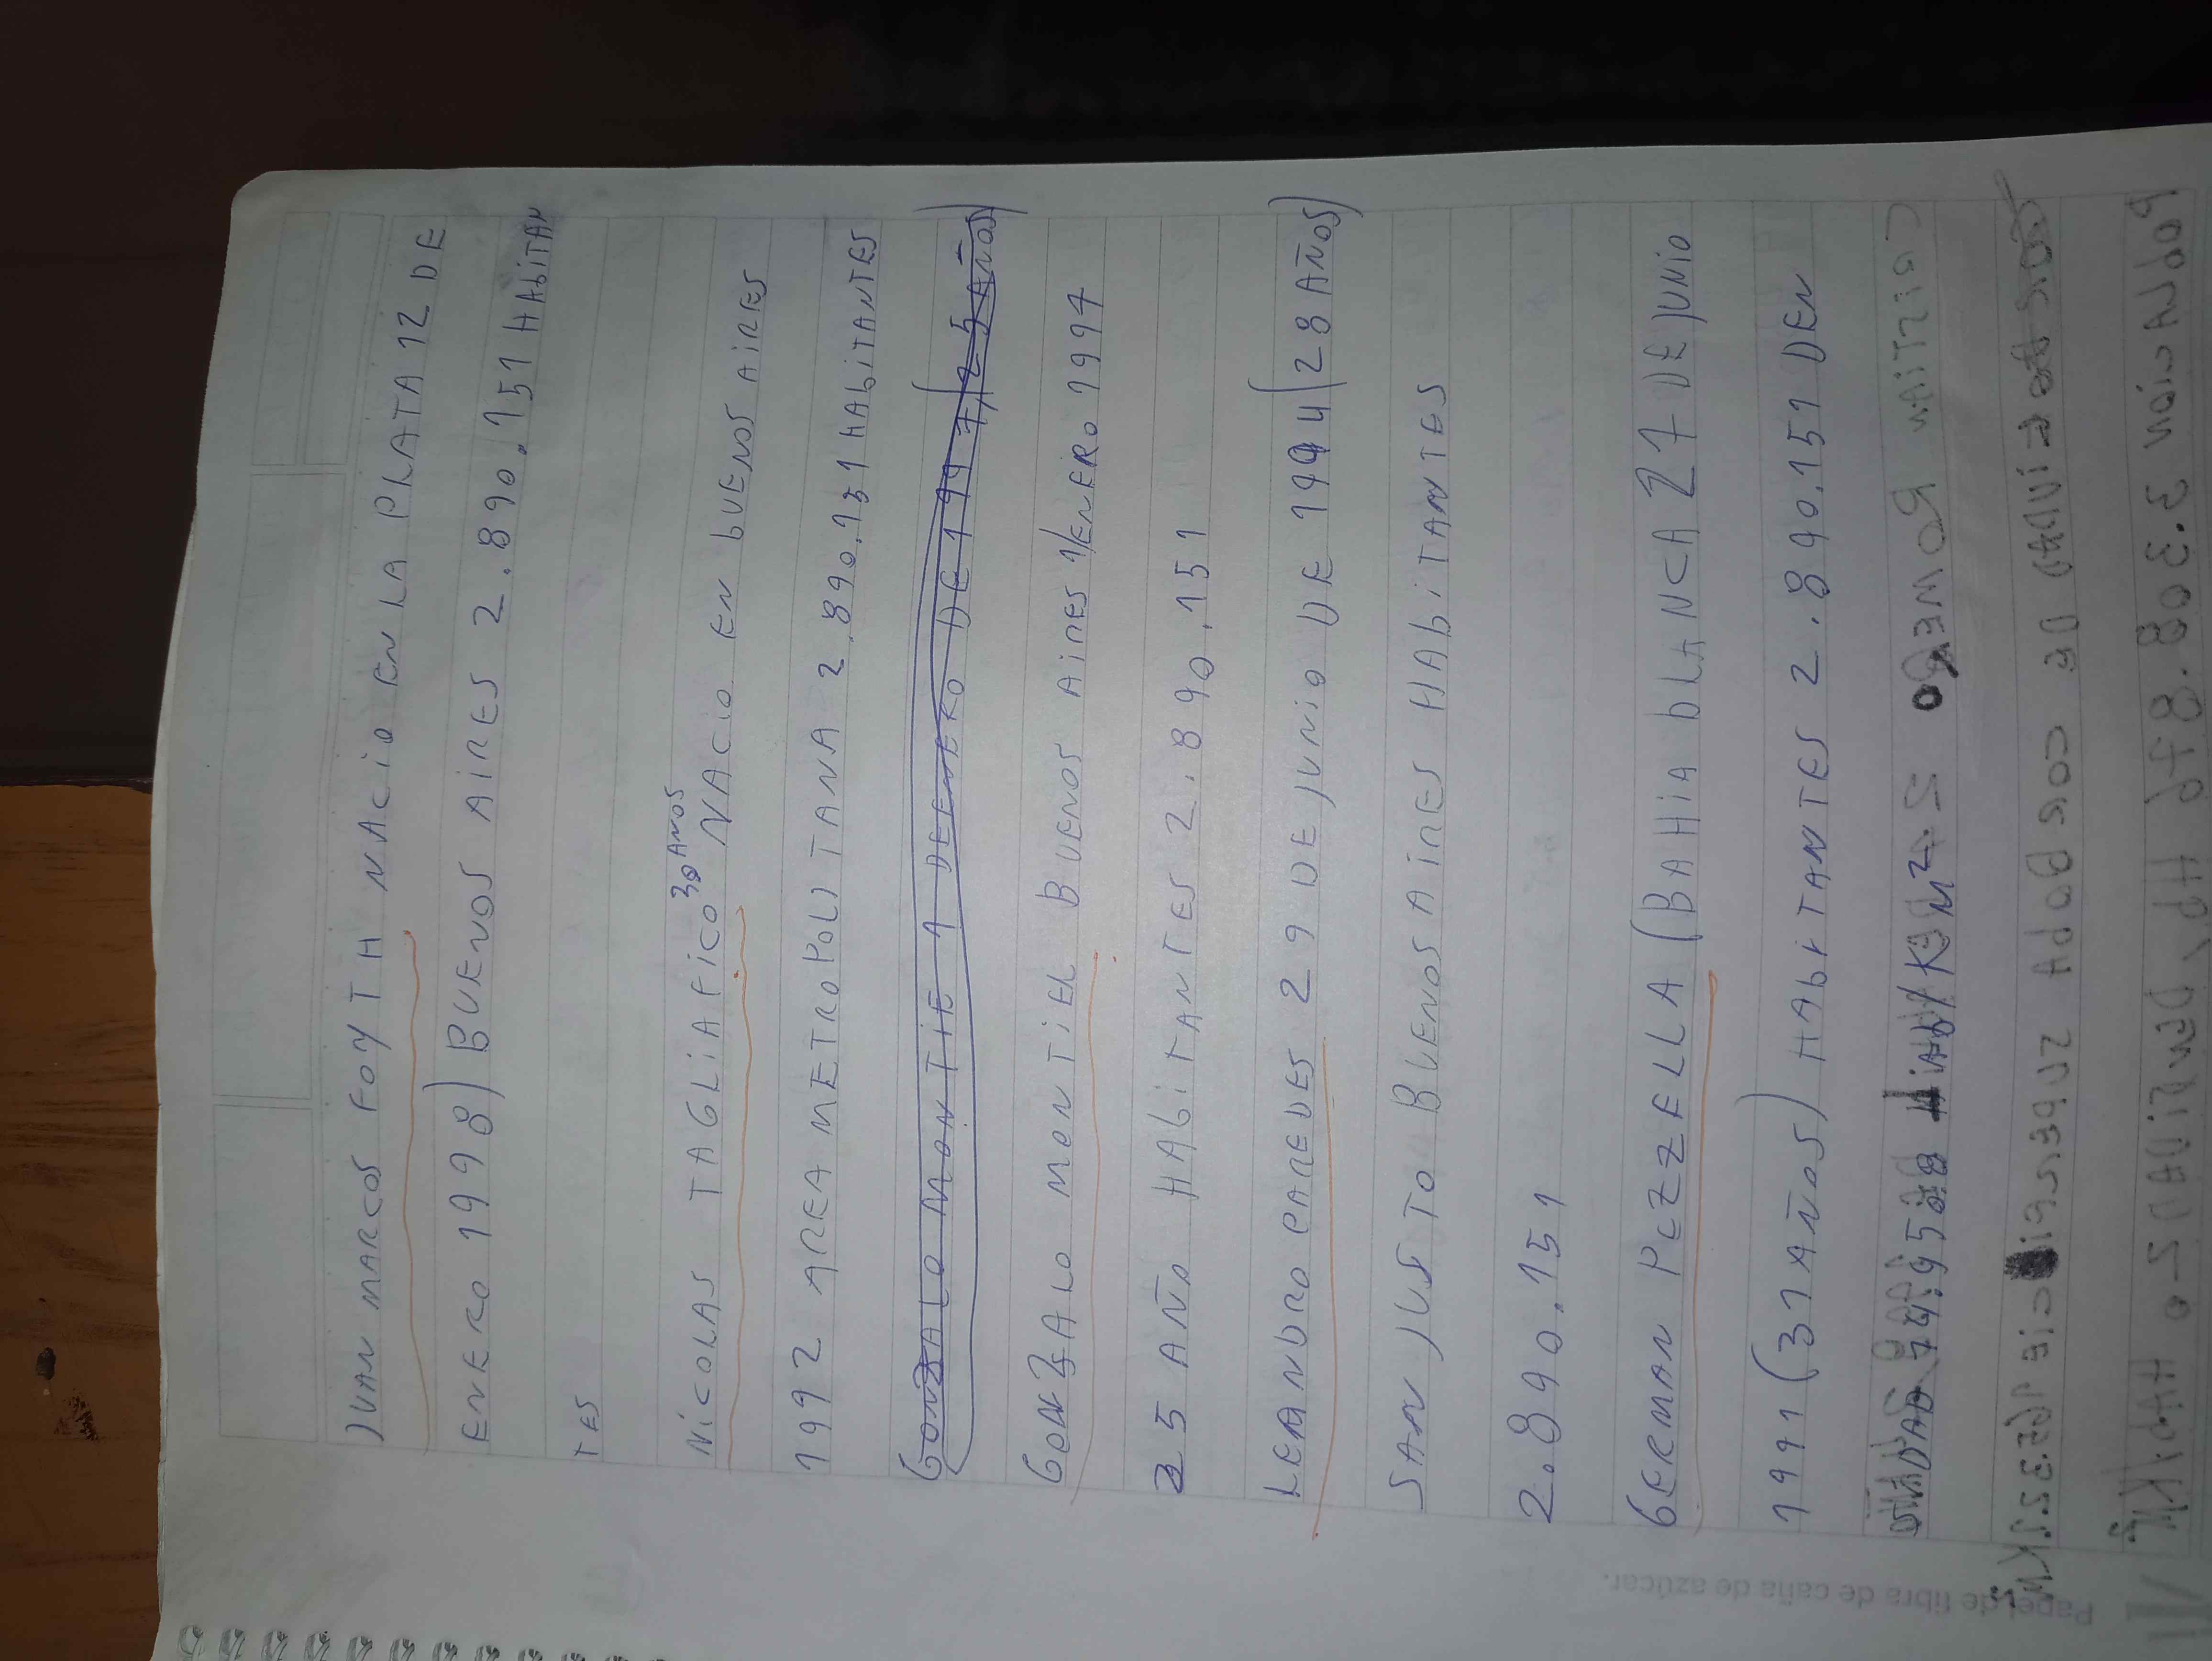 JUAN MARCOS FOYTH NACIO EN LA PLATA 12 DE
ENERO 1998) BUENOS AIRES 2.890.151 HABITAN
TES
30 AÑOS
NICOLAS TAGLIAFICO NACIO EN BUENOS AIRES
1992 AREA METROPOLITANA 2.890.151 HABITANTES
GONZALO MONTIE 1 DE ENERO DE 1997,(25 AÑOS)
GONZALO MONTIEL BUENOS AIRES 1/ENERO 1997
25 AÑO HABITANTES 2.890.151
LEANDRO PAREDES 29 DE JUNIO DE 1994 (28 AÑOS)
SAN JUSTO BUENOS AIRES HABITANTES
2.890.151
GERMAN PEZZELLA (BAHIA BLANCA 27 DE JUNIO
1991 (31 AÑOS) HABITANTES 2.890.151 DEN
SIDAD HAB/KM2.
CRISTIAN ROMERO
CIUDAD DE CORDOBA SUPERFICIE
POBLACION 3.308.876 HA, DENSIDAD 20
HAB/KM2
Papel de fibra de caña de azúcar.